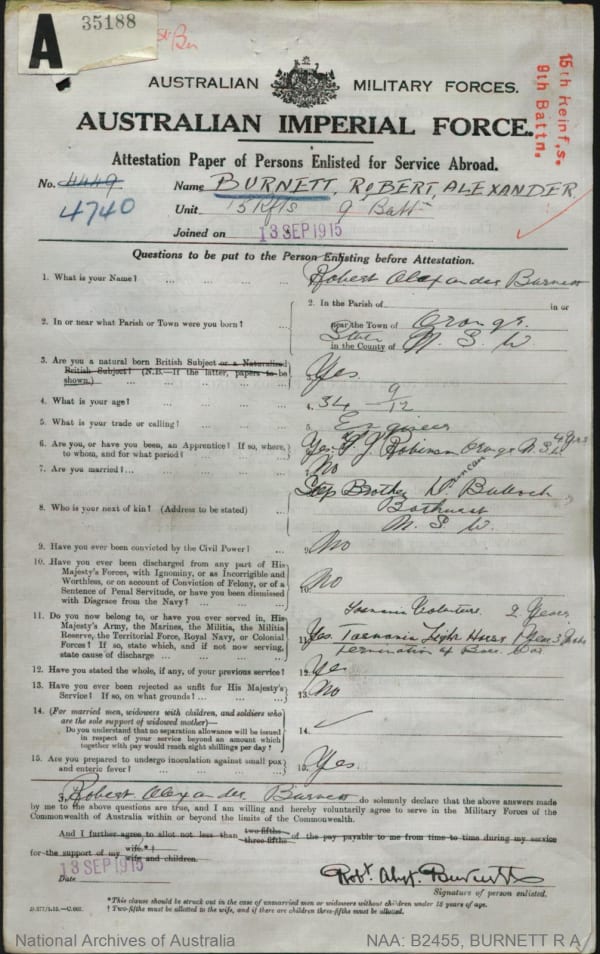 A
35188
AUSTRALIAN MILITARY FORCES.
AUSTRALIAN IMPERIAL FORCE.
15th Reinf,s.
9th Battn.
Attestation Paper of Persons Enlisted for Service Abroad.
No. 4449 Name BURNETT, ROBERT, ALEXANDER.
4740 Unit 15 Rfts 9 Batt
Joined on 13 SEP 1915
Questions to be put to the Person Enlisting before Attestation.
1. What is your Name? ... ... ... ... Robert Alexander Burnett
2. In or near what Parish or Town were you born? ...
2. In the Parish of in or
near the Town of Orange.
State
in the County of N. S. W
3. Are you a natural born British Subject or a Naturalized
British Subject? (N.B.—If the latter, papers to be
shown.) ... ... ... ... ... Yes.
4. What is your age? ... ... ... ... 4. 34 9/12
5. What is your trade or calling? ... ... ... 5. Engineer
6. Are you, or have you been, an Apprentice? If so, where,
to whom, and for what period? ... ... ... Yes. J Robinson Orange N.S.W 4 yrs
7. Are you married? ... ... ... ... No
8. Who is your next of kin? (Address to be stated) ...
Step Brother D. Duncan Bulloch
Bathurst
N. S. W.
9. Have you ever been convicted by the Civil Power? ... 9. No
10. Have you ever been discharged from any part of His
Majesty's Forces, with Ignominy, or as Incorrigible and
Worthless, or on account of Conviction of Felony, or of a
Sentence of Penal Servitude, or have you been dismissed
with Disgrace from the Navy? ... ... ... 10. No
11. Do you now belong to, or have you ever served in, His
Majesty's Army, the Marines, the Militia, the Militia
Reserve, the Territorial Force, Royal Navy, or Colonial
Forces? If so, state which, and if not now, serving,
state cause of discharge ... ... ...
Tasmania Volunteers. 2 Years
11. Yes. Tasmania Light Horse 1 Year 3
termination of Boer War
12. Have you stated the whole, if any, of your previous service? 12. Yes
13. Have you ever been rejected as unfit for His Majesty's
Service? If so, on what grounds? ... ... 13. No
14. (For married men, widowers with children, and soldiers who
are the sole support of widowed mother)—
Do you understand that no separation allowance will be issued
in respect of your service beyond an amount which
together with pay would reach eight shillings per day? 14. ✓
15. Are you prepared to undergo inoculation against small pox
and enteric fever? ... ... ... ... 15. Yes.
I, Robert Alexander Burnett do solemnly declare that the above answers made
by me to the above questions are true, and I am willing and hereby voluntarily agree to serve in the Military Forces of the
Commonwealth of Australia within or beyond the limits of the Commonwealth.
And I further agree to allot not less than two-fifths
three-fifths of the pay payable to me from time to time during my service
for the support of my wife.*†
wife and children.
Date 13 SEP 1915
Robt. Alex. Burnett
Signature of person enlisted.
*This clause should be struck out in the case of unmarried men or widowers without children under 18 years of age.
† Two-fifths must be allotted to the wife, and if there are children three-fifths must be allotted.
National Archives of Australia
NAA: B2455, BURNETT R A